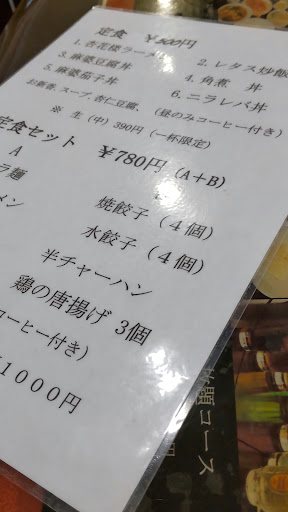 定食 ￥500円
1. 杏花楼ラーメン 2. レタス炒飯
3. 麻婆豆腐丼 4. 角煮 丼
5. 麻婆茄子丼 6. ニラレバ丼
お新香、スープ、杏仁豆腐、（昼のみコーヒー付き）
※ 生（中）390円（一杯限定）
定食セット ￥780円（A＋B）
A
ラ麺 焼餃子（４個）
メン 水餃子（４個）
半チャーハン
鶏の唐揚げ 3個
コーヒー付き）
1０００円
放題コース